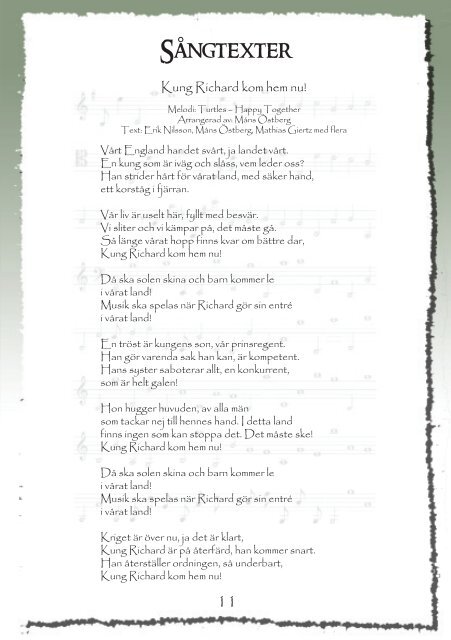 SÅNGTEXTER
Kung Richard kom hem nu!
Melodi: Turtles – Happy Together
Arrangerad av: Måns Östberg
Text: Erik Nilsson, Måns Östberg, Mathias Giertz med flera
Vårt England har det svårt, ja landet vårt.
En kung som är iväg och slåss, vem leder oss?
Han strider hårt för vårat land, med säker hand,
ett korståg i fjärran.
Vår liv är uselt här, fyllt med besvär.
Vi sliter och vi kämpar på, det måste gå.
Så länge vårat hopp finns kvar om bättre dar,
Kung Richard kom hem nu!
Då ska solen skina och barn kommer le
i vårat land!
Musik ska spelas när Richard gör sin entré
i vårat land!
En tröst är kungens son, vår prinsregent.
Han gör varenda sak han kan, är kompetent.
Hans syster saboterar allt, en konkurrent,
som är helt galen!
Hon hugger huvuden, av alla män
som tackar nej till hennes hand. I detta land
finns ingen som kan stoppa det. Det måste ske!
Kung Richard kom hem nu!
Då ska solen skina och barn kommer le
i vårat land!
Musik ska spelas när Richard gör sin entré
i vårat land!
Kriget är över nu, ja det är klart,
Kung Richard är på återfärd, han kommer snart.
Han återställer ordningen, så underbart,
Kung Richard kom hem nu!
11